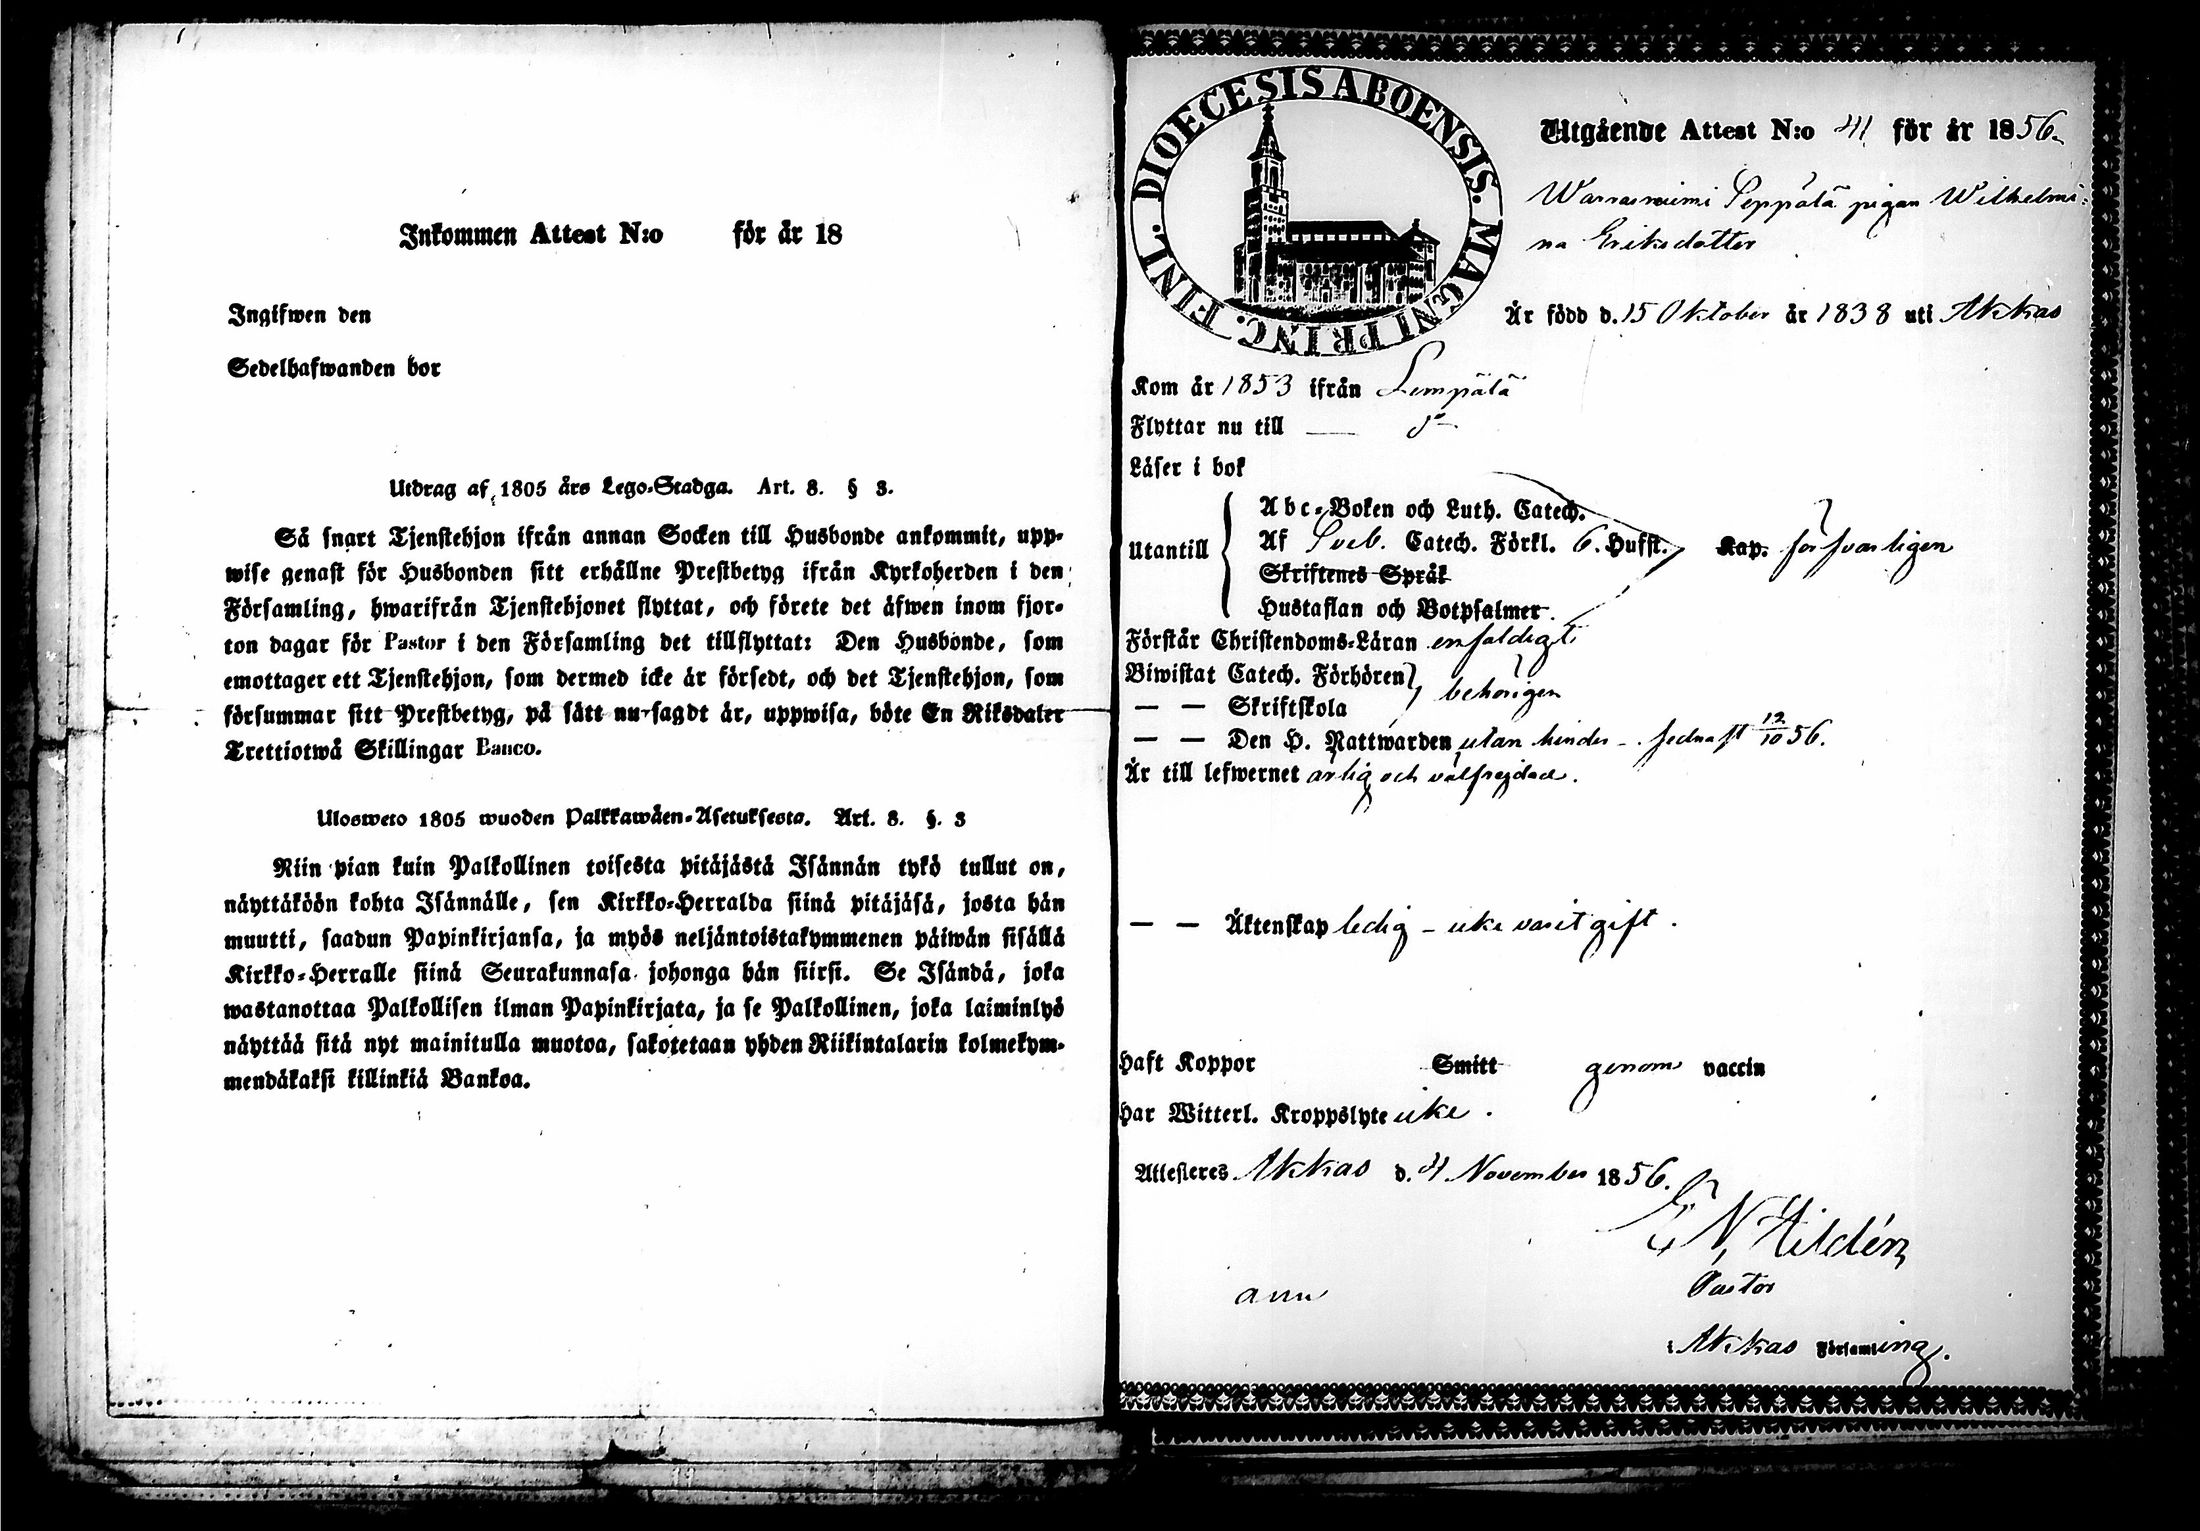 Inkommen Attest N:o för år 18
Ingifwen den
Sedelhafwanden bor
Utdrag af 1805 års Lego-Stadga. Art. 8. § 3.
Så snart Tjenstehjon ifrån annan Socken till Husbonde ankommit, upp-
wise genast för Husbonden sitt erhållne Prestbetyg ifrån Kyrkoherden i den
Församling, hwarifrån Tjenstehjonet flyttat, och förete det äfwen inom fjor-
ton dagar för Pastor i den Församling det tillflyttat: Den Husbonde, som
emottager ett Tjenstehjon, som dermed icke är försedt, och det Tjenstehjon, som
försummar sitt Prestbetyg, på sätt nu sagdt är, uppwisa, böte En Riksdaler
Trettiotwå Skillingar Banco.
Ulosweto 1805 wuoden Palkkawäen-Asetuksesta. Art. 8. §. 3
Niin pian kuin Palkollinen toisesta pitäjästä Isännän tykö tullut on,
näyttäköön kohta Isännälle, sen Kirkko-Herralda siinä pitäjäsä, josta hän
muutti, saadun Papinkirjansa, ja myös neljäntoistakymmenen päiwän sisällä
Kirkko-Herralle siinä Seurakunnasa johonga hän siirsi. Se Isändä, joka
wastanottaa Palkollisen ilman Papinkirjata, ja se Palkollinen, joka laiminlyö
näyttää sitä nyt mainitulla muotoa, sakotetaan yhden Riikintalarin kolmekym-
mendäkaksi killinkiä Bankoa.
DIOECESIS ABOENSIS. MAGNI PRINC. FINL.
Utgående Attest N:o 41 för år 1856.
Seppälä pigan Wilhelmi-
na Eriksdotter
Är född d. 15 Oktober år 1838 uti Akkas
Kom år 1853 ifrån Lempälä
Flyttar nu till — do
Läser i bok
Abc-Boken och Luth. Catech.
Utantill Af Sveb. Catech. Förkl. 6. Hufst. Kap. försvarligen
Skriftenes Språk
Hustaflan och Botpsalmer.
Förstår Christendoms-Läran enfaldigt
Biwistat Catech. Förhören
— — Skriftskola behörigen
— — Den H. Nattwarden utan hinder - sednast 12/10 56.
Är till lefwernet ärlig och välfrejdad.
— — Äktenskap ledig - icke varit gift.
Haft Koppor Smitt genom vaccin
Har Witterl. Kroppslyte icke.
Attesteres Akkas d. 4 November 1856.
E N Hildén
Pastor
i Akkas Församling.